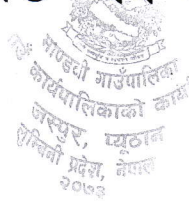 माण्डवी गाउँपालिका
कार्यपालिकाको कार्या
जस्पुर, प्यूठान
लुम्बिनी प्रदेश, नेपाल
२०७३